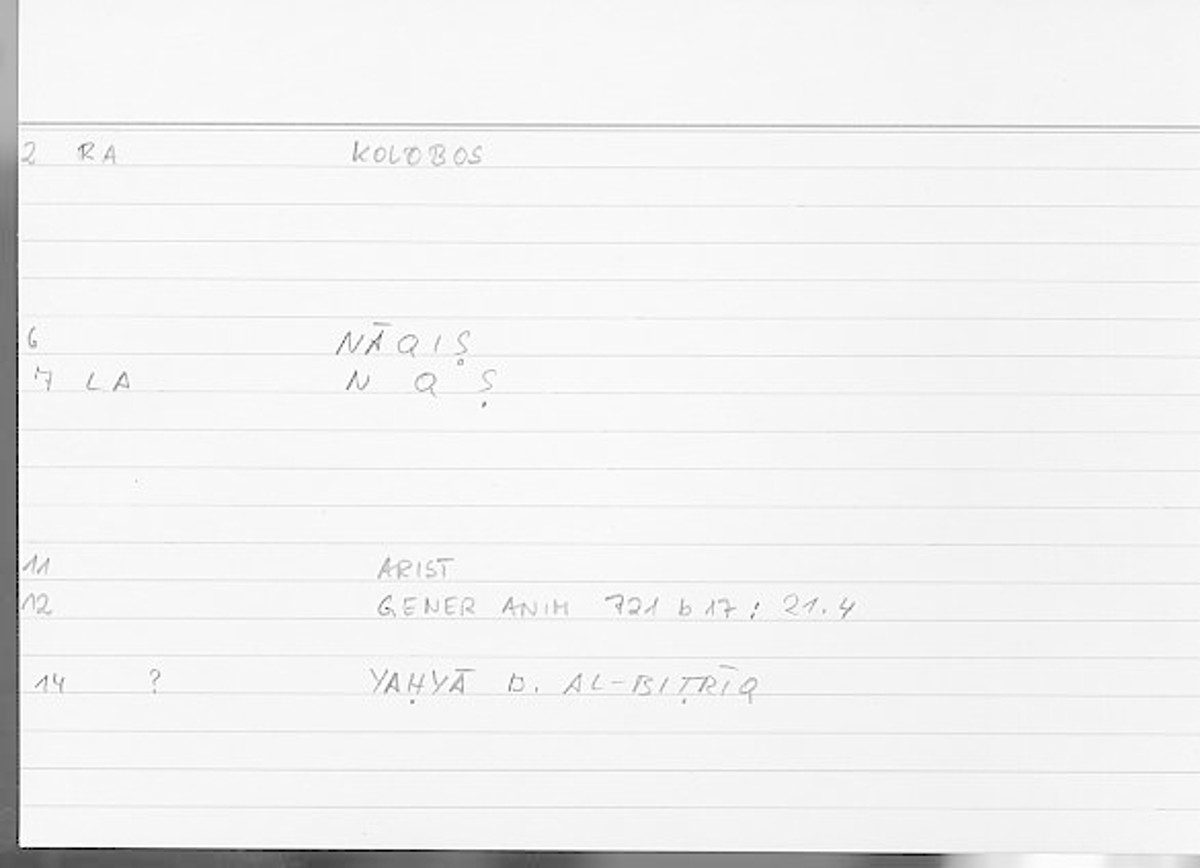 2 RA KOLOBOS
6 NĀQIṢ
7 LA N Q Ṣ
11 ARIST
12 GENER ANIM 721 b 17 ; 21.4
14 ? YAḤYĀ b. AL-BIṬRĪQ